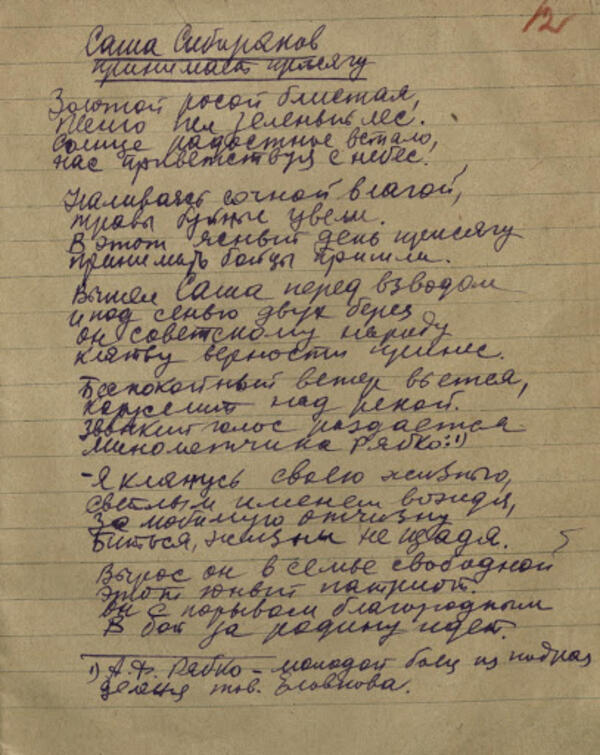 12
Саша Сибиряков
принимает присягу
Золотой росой блистая,
Песню пел зеленый лес.
Солнце радостное встало,
нас приветствуя с небес.
Наливаясь сочной влагой,
травы буйные цвели.
В этот ясный день присягу
принимать бойцы пришли.
Вышел Саша перед взводом
и под сенью двух берез
он советскому народу
клятву верности принес.
Беспокойный ветер вьется,
карусели́т над рекой.
Звонкий голос раздается
Минометчика Рябко:¹)
- Я клянусь своею жизнью,
светлым именем вождя,
За любимую отчизну
Биться, жизни не щадя.
Вырос он в семье свободной
этот юный патриот.
Он с порывом благородным
В бой за родину идет.
¹) А.Ф. Рябко - молодой боец из подраз
деленя тов.